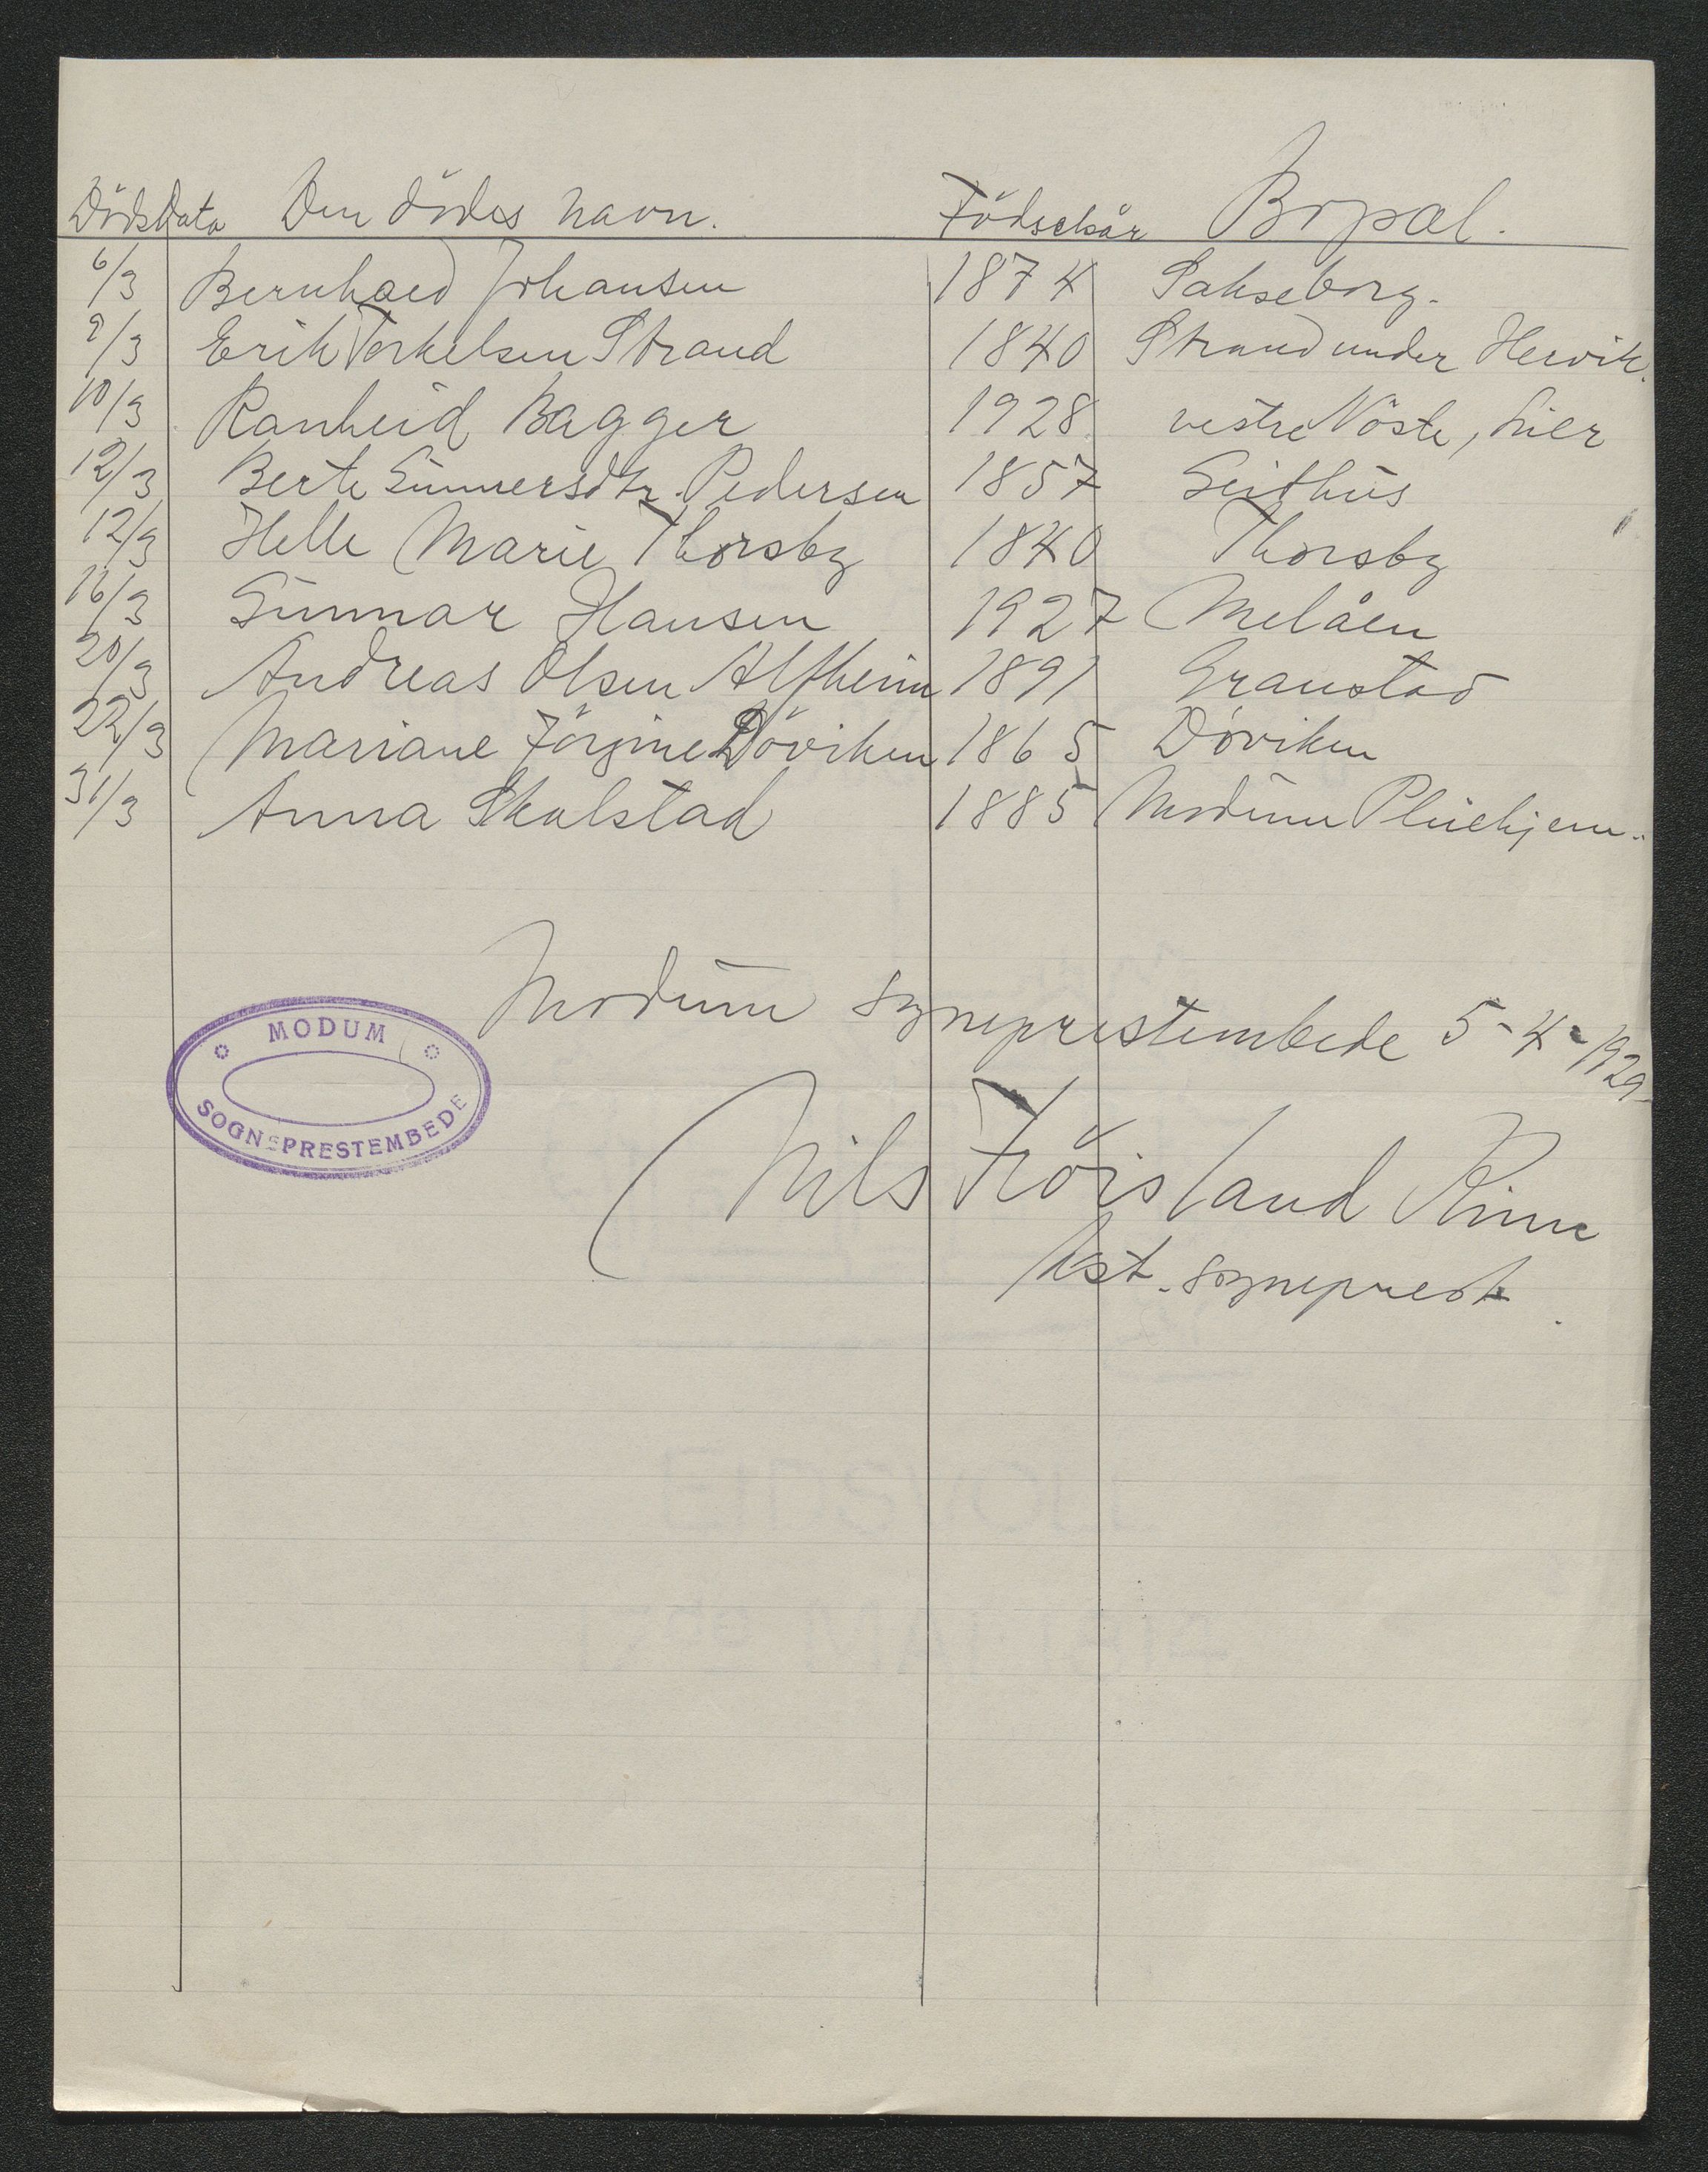 Dödsdato Den dödes navn. Födselsår Bopæl.
6/3 Bernhard Johansen 1874 Sakseborg.
9/3 Erik Torkelsen Strand 1840 Strand under Hervik.
10/3 Ranheid Bagger 1928 vestre Nöste, Lier
12/3 Berte Gunnersdtr. Pedersen 1857 Geithus
12/3 Helle Marie Thorsby 1840 Thorsby
16/3 Gunnar Hansen 1927 Melåen
20/3 Andreas Olsen Alfheim 1891 Granstad
22/3 Mariane Jörgine Döviken 1865 Döviken
31/3 Anna Skalstad 1885 Modum Pleiehjem.
Modum sogneprestembede 5-4-1929
MODUM
SOGNEPRESTEMBEDE
Nils Fröisland
kst. sogneprest.